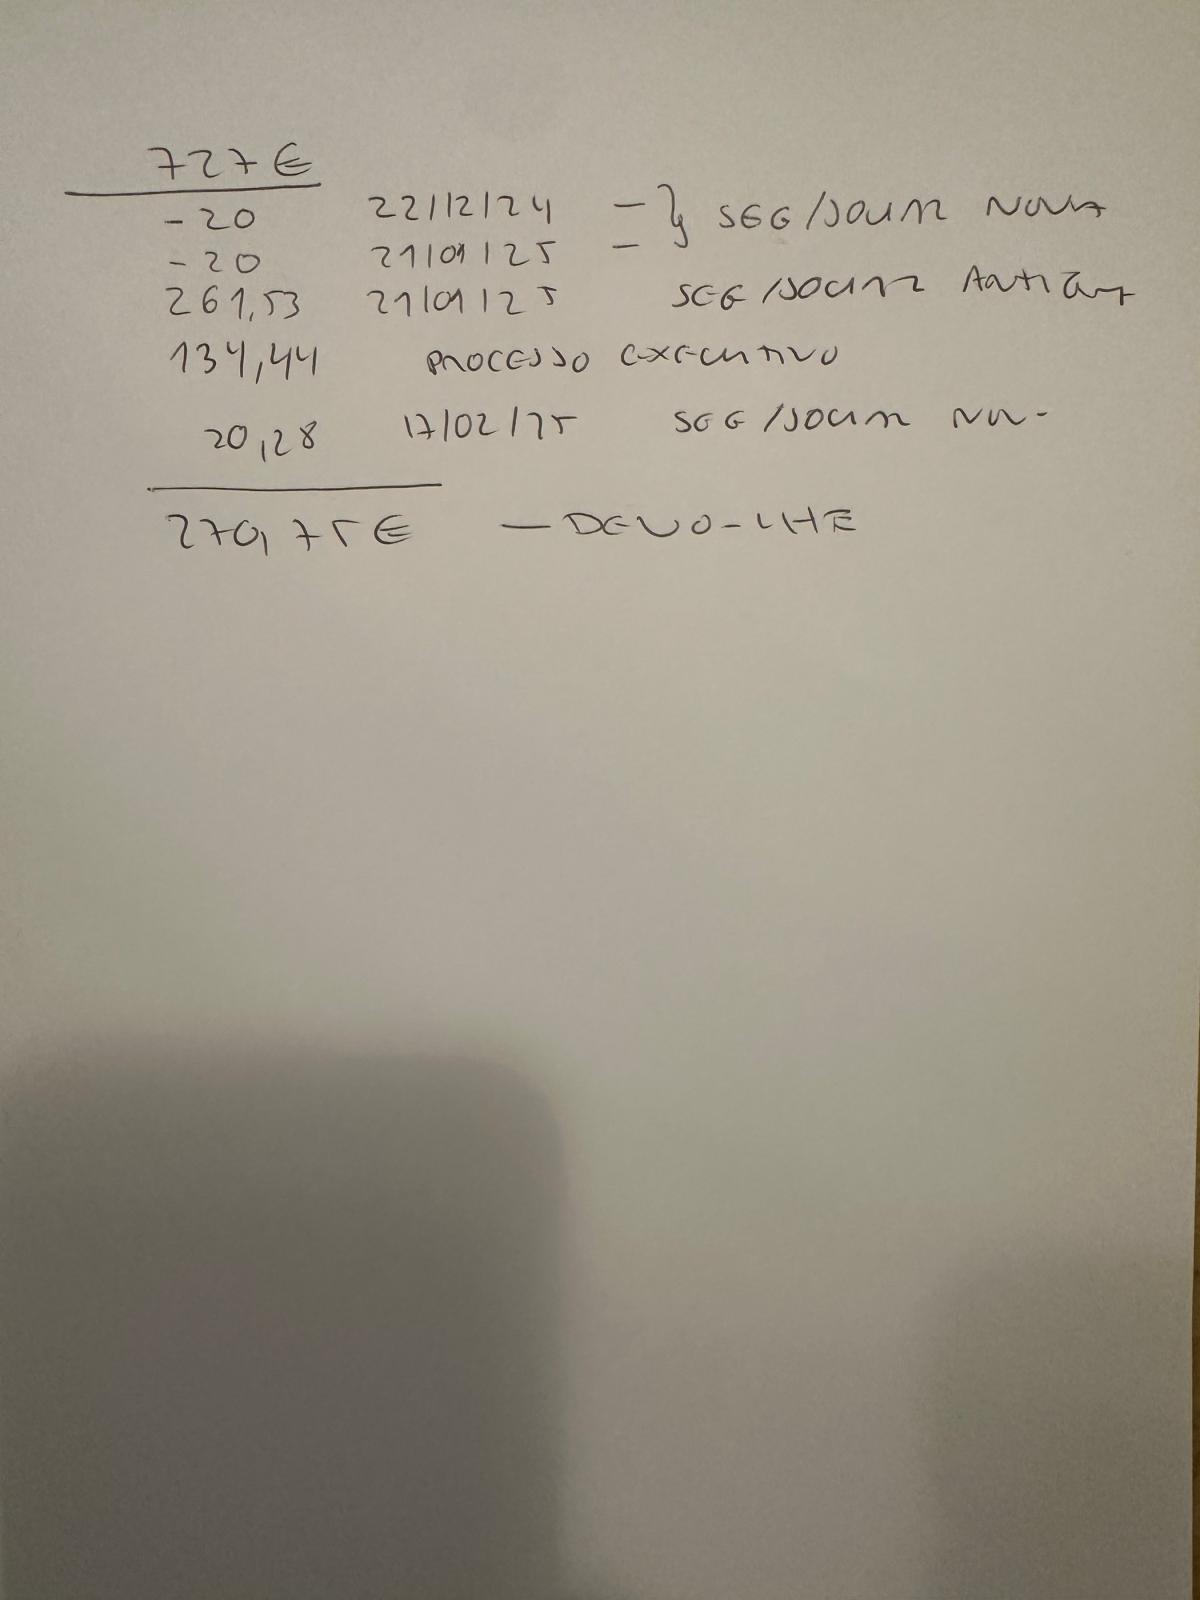 727€
-20 22/12/24 - } SEG/SOCIAL NOVA
-20 21/01/25 -
261,53 21/01/25 SEG/SOCIAL ANTIGA
134,44 PROCESSO EXECUTIVO
20,28 17/02/25 SEG/SOCIAL
270,75€ - DEVO-LHE